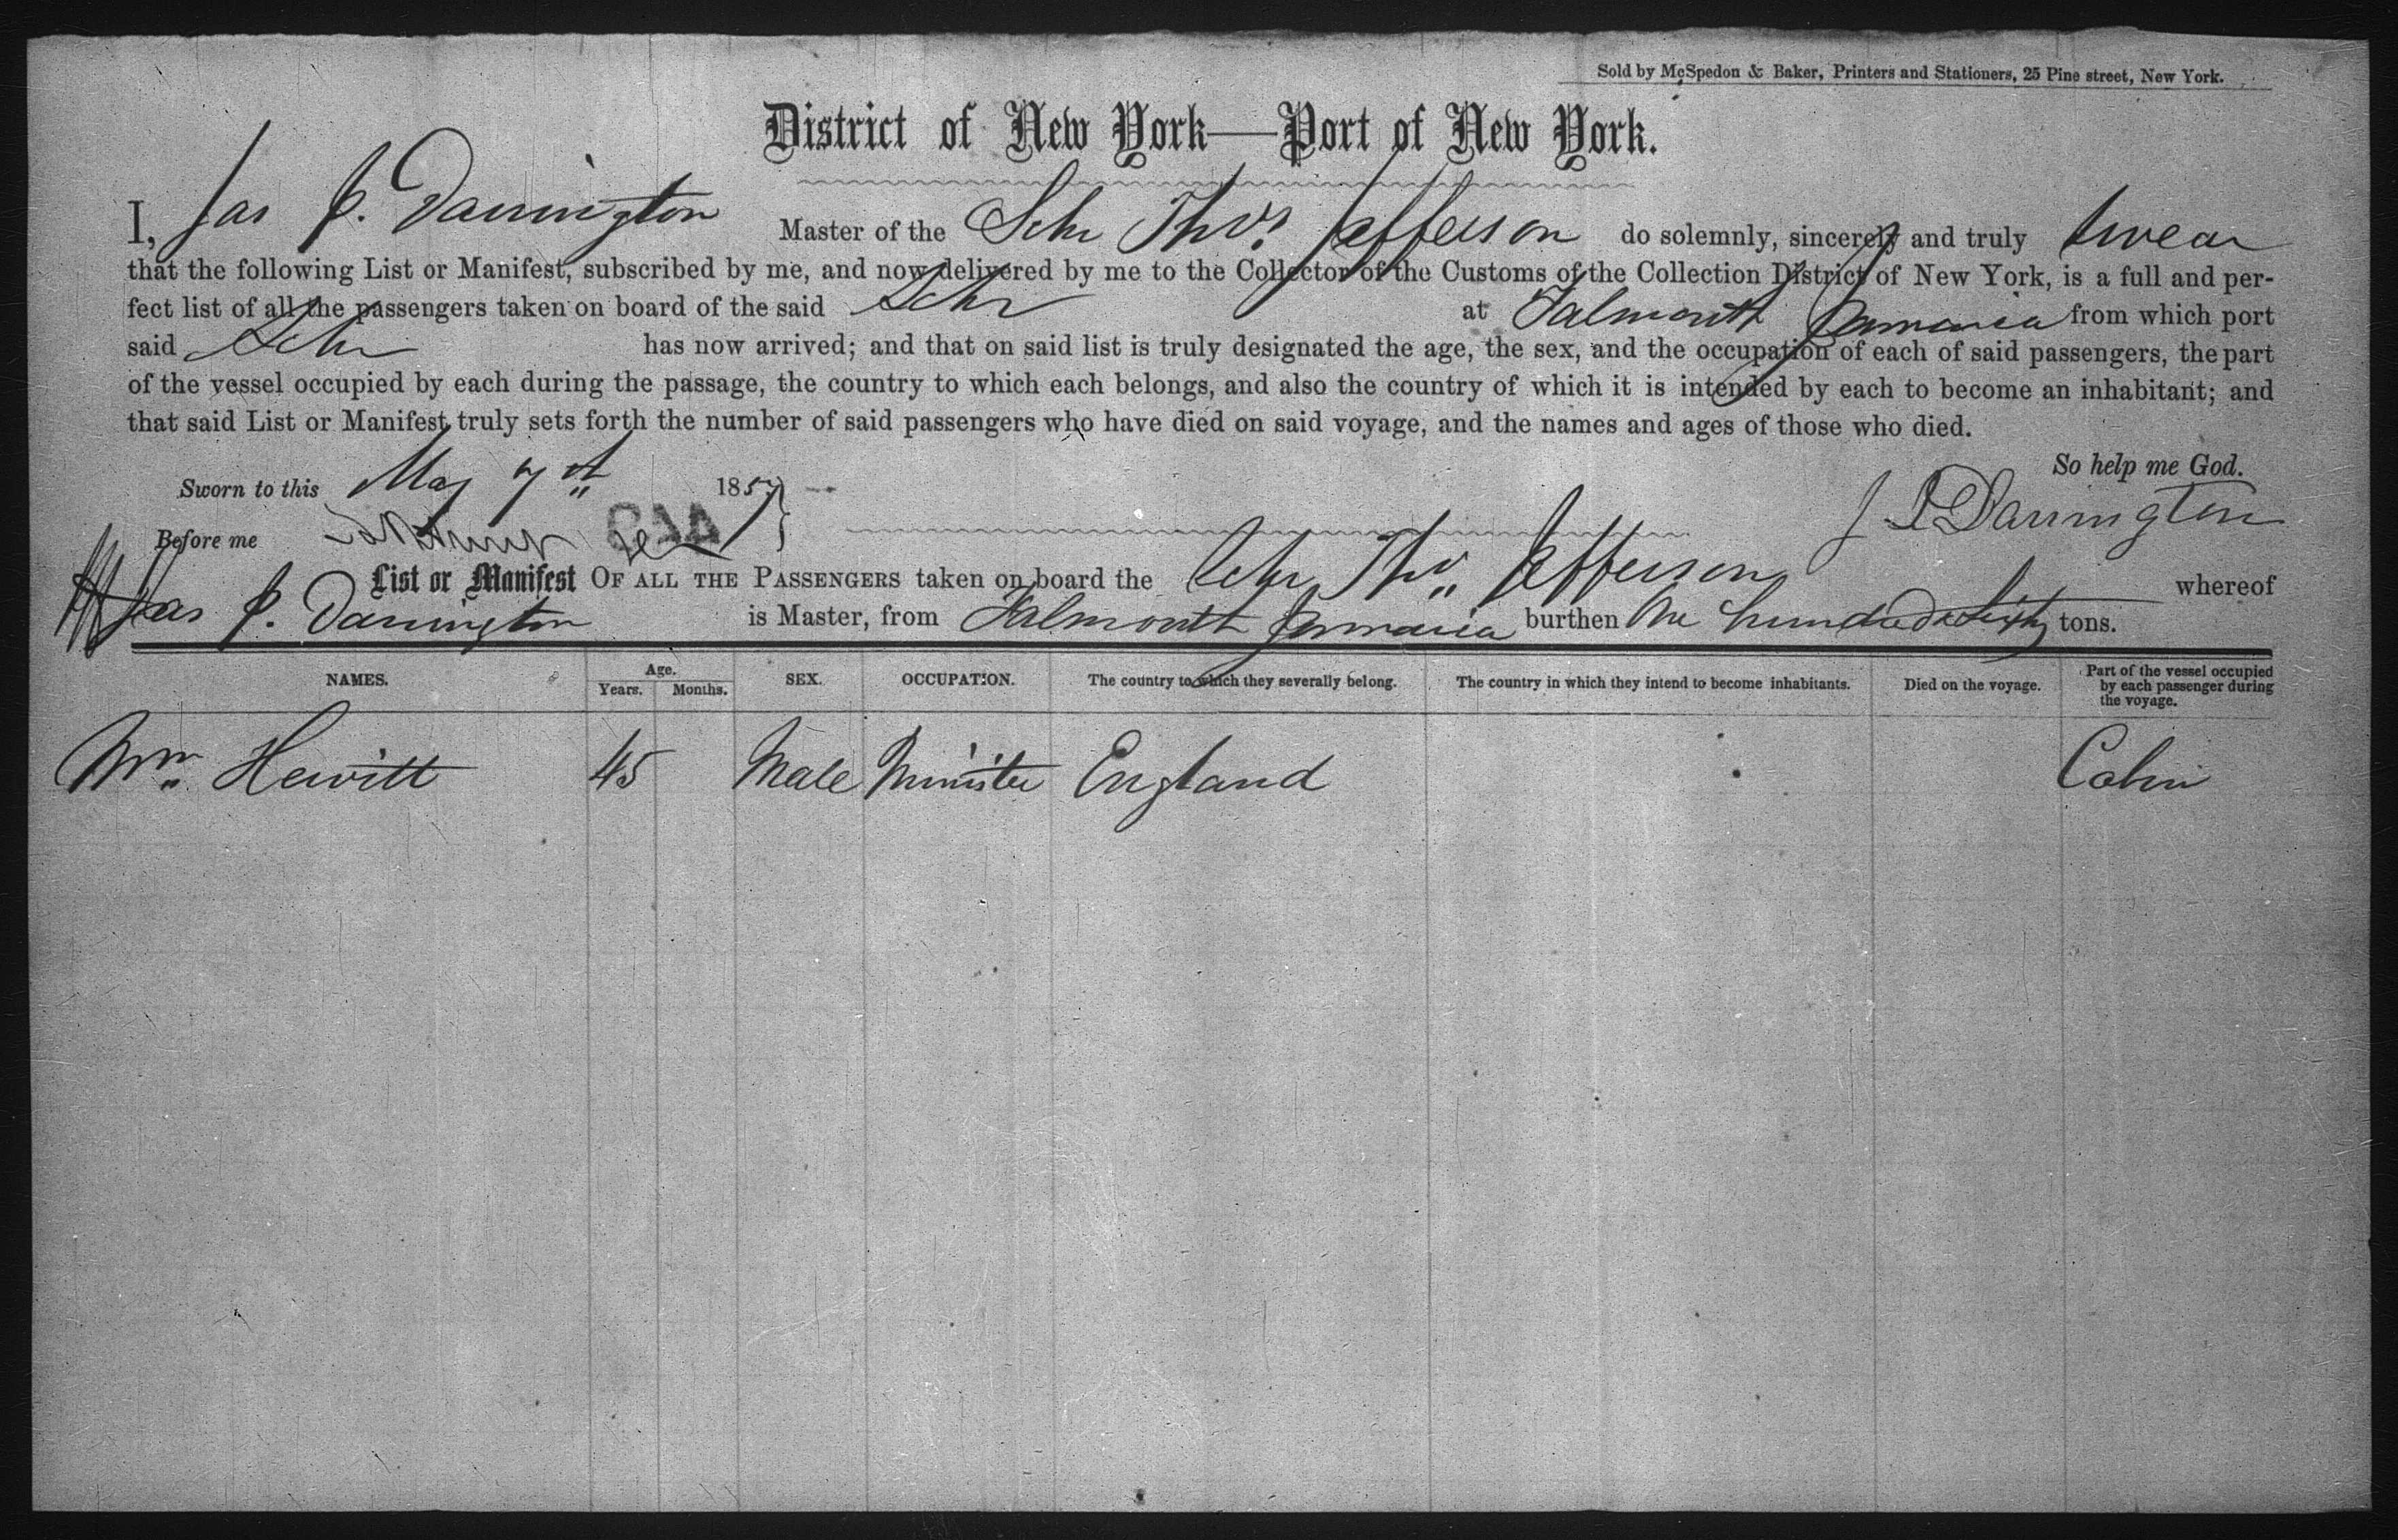 Sold by McSpedon & Baker, Printers and Stationers, 25 Pine street, New York.
District of New York—Port of New York.
I, Jas P. Darrington Master of the Schr Thos. Jefferson do solemnly, sincerely and truly swear
that the following List or Manifest, subscribed by me, and now delivered by me to the Collector of the Customs of the Collection District of New York, is a full and per-
fect list of all the passengers taken on board of the said Schr at Falmouth Jamaica from which port
said Schr has now arrived; and that on said list is truly designated the age, the sex, and the occupation of each of said passengers, the part
of the vessel occupied by each during the passage, the country to which each belongs, and also the country of which it is intended by each to become an inhabitant; and
that said List or Manifest truly sets forth the number of said passengers who have died on said voyage, and the names and ages of those who died.
So help me God.
Sworn to this May 7th 1857
J P Darrington
Before me
List or Manifest OF ALL THE PASSENGERS taken on board the Schr Thos. Jefferson whereof
Jas P. Darrington is Master, from Falmouth Jamaica burthen One hundred & Sixty tons.
NAMES. Age. Years. Months. SEX. OCCUPATION. The country to which they severally belong. The country in which they intend to become inhabitants. Died on the voyage. Part of the vessel occupied by each passenger during the voyage.
Wm. Hewitt 45 Male Minister England Cabin